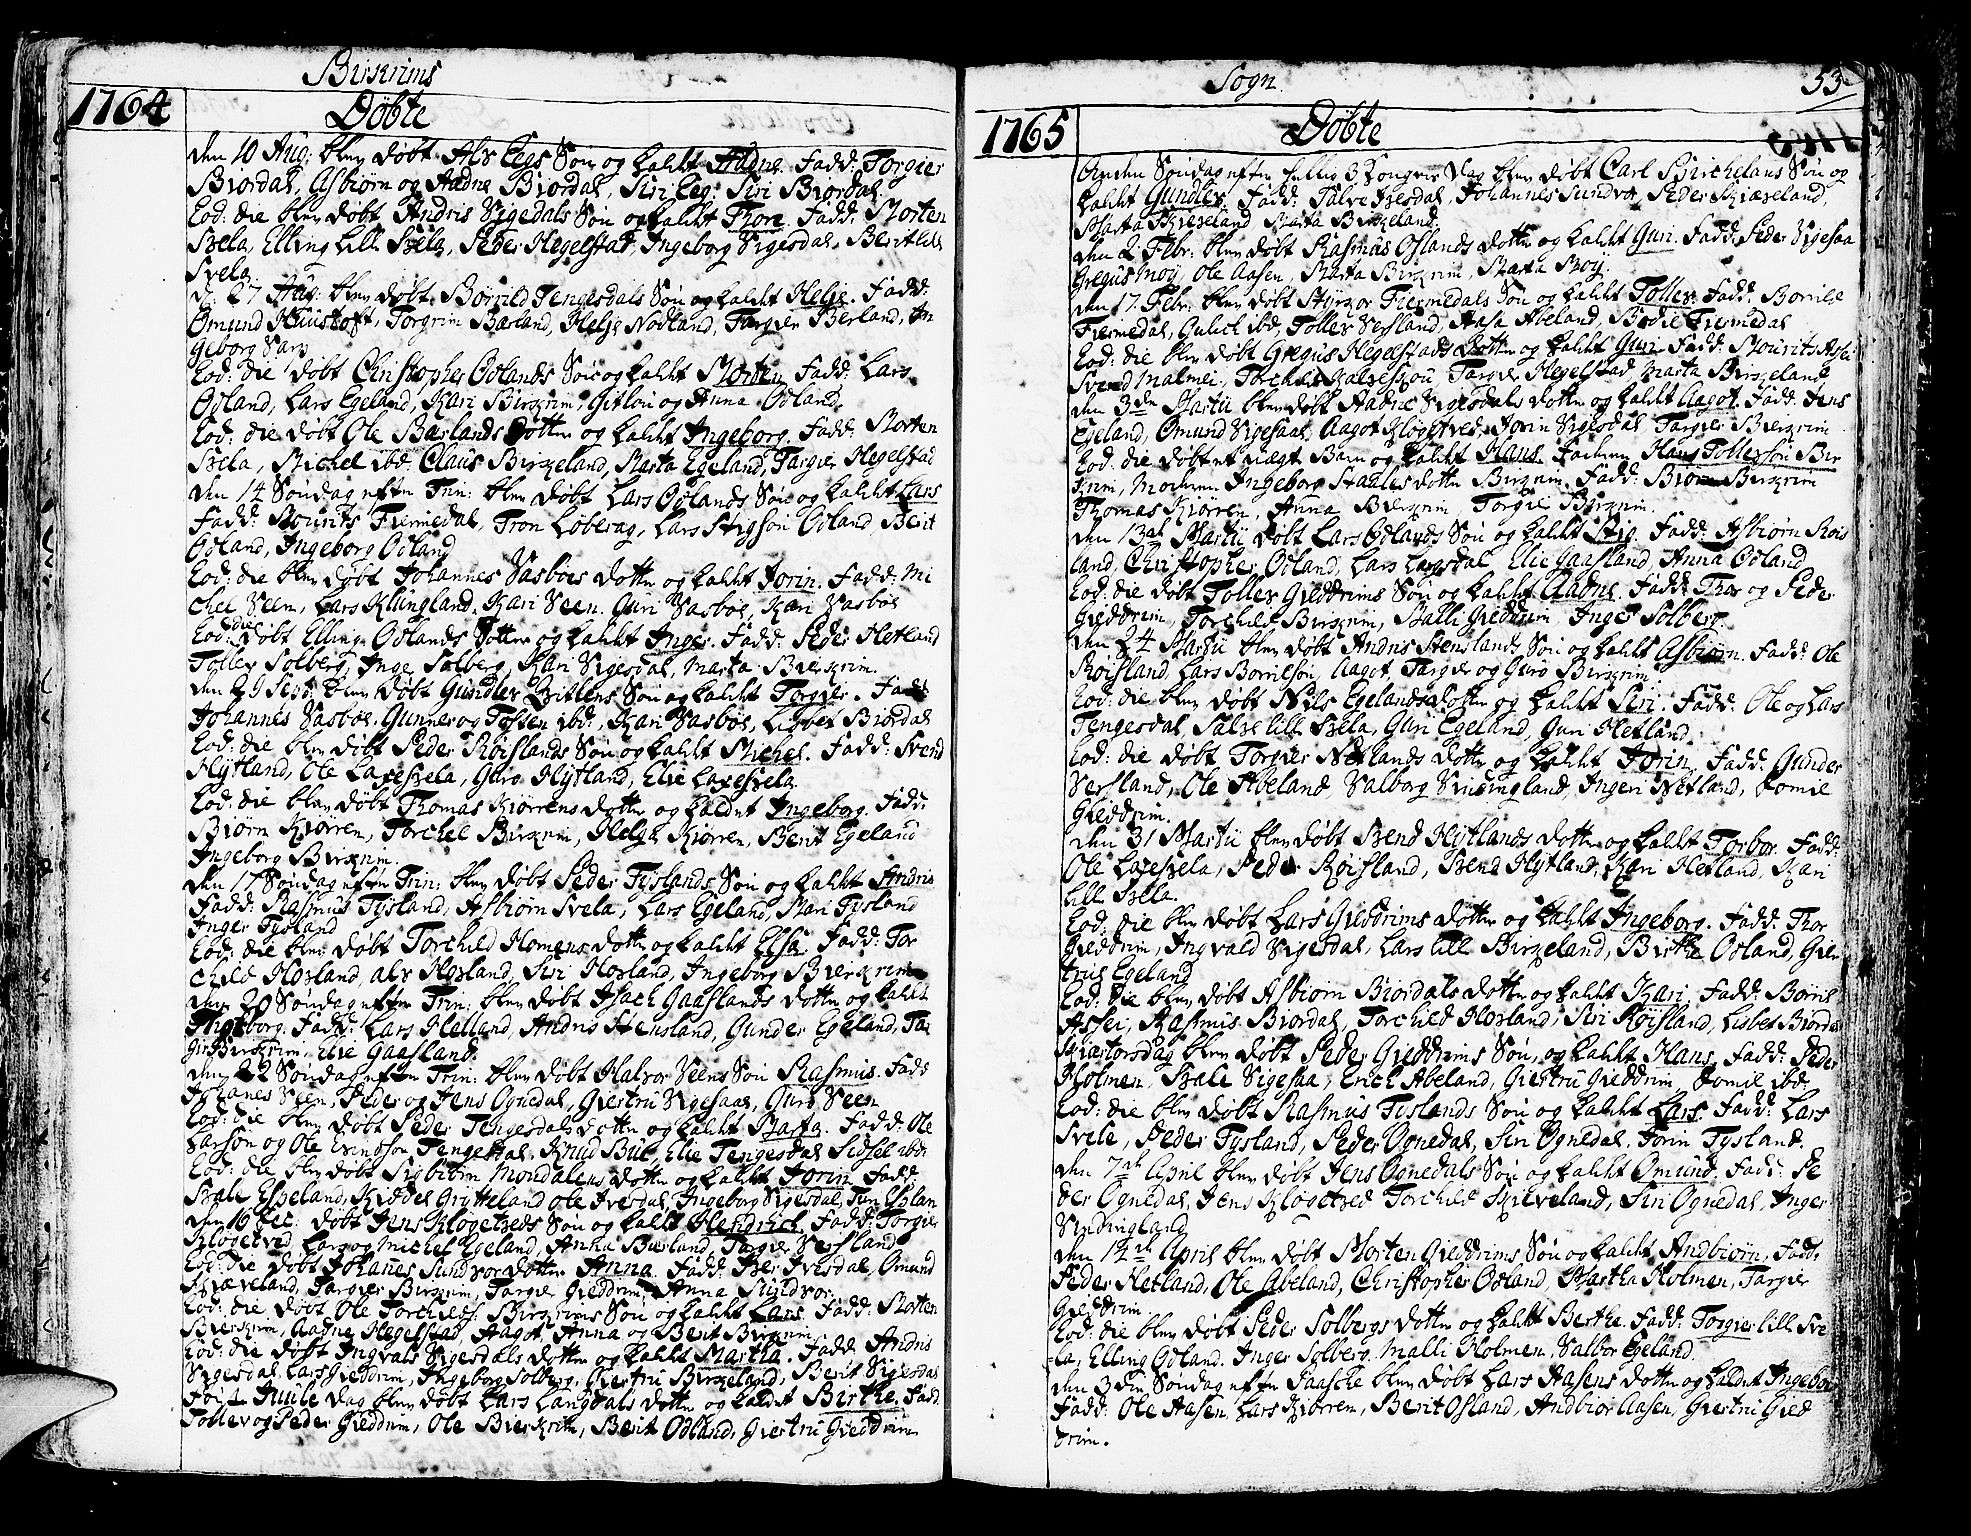 Birkrims
1764 Døbte
den 10 Aug: blev døbt Alv Eegs Søn og kaldt Aadne. Fadd: Torgier
Biordal, Asbiørn og Aadne Biordal, Siri Eeg, Siri Biordal
Eod: die blev døbt Andris Vigedals Søn og kaldt Thore. Fadd: Morten
Svela, Elling Lill Svela, Peder Hegelstad, Ingeborg Vigesdal, Berit Lill
Svela.
D: 27 Aug: blev døbt Børrild Tengesdals Søn og kaldt Helje. Fadd:
Omund Haustoft, Torgrim Bærland, Helje Nodland, Targier Berland, In
geborg
Eod: die døbt Christopher Odlands Søn og kaldt Morten Fadd: Lars
Odland, Lars Egeland, Kari Birkrim, Gitlou og Anna Odland.
Eod: die døbt Ole Bærlands Dotter og kaldt Ingeborg. Fadd: Morten
Svela, Michel ibd: Claus Birkeland, Marta Egeland, Targier Hegelstad
den 14 Søndag efter Trin: blev døbt Lars Odlands Søn og kaldt Lars
Fadd: Mourits Fiermedal, Tron Løbevag, Lars Stigson Odland, Berit
Odland, Ingeborg Odland
Eod: die blev døbt Johannes Vasbøes dotter og kaldt Jorin. Fadd: Mi
chel Veen, Lars Klungland, Kari Veen, Guri Vasbøe, Kari Vasbøe
Eod: die døbt Elling Odlands Dotter og kaldt Inger. Fadd: Peder Hetland
Tollev Solberg, Inge Solberg, Kari Vigesdal, Marta Bierkrim.
den 29 Sept: blev døbt Gundlev Søn og kaldt Torgier. Fadd
Johannes Vasbøe, Gunner og Tosten ibd:, Kari Vasbøe, Lisbet Biordal
Eod: die blev døbt Peder Røislands Søn og kaldt Michel. Fadd: Svend
Hytland, Ole Laxesvela, Guro Hytland, Elie Laxesvela.
Eod: die blev døbt Thomas Kiørrens dotter og kaldet Ingeborg. Fadd:
Biørn Kiørren, Torchel Birkrim, Helge Kiørren, Berit Egeland
Ingeborg Birkrim.
Den 17 Søndag efter Trin: blev døbt Peder Tyslands Søn og kaldt Andris
Fadd: Rasmus Tysland, Asbiørn Svela, Lars Egeland, Mari Tysland
Inger Tysland
Eod: die blev døbt Torchild Homens dotter og kaldt Elsa. Fadd: Tor
child Hovland, alv Hovland, Siri Hovland, Ingeborg Bierkrim
den 20 Søndag efter Trin: blev døbt Isach Gaaslands dotter og kaldt
Ingeborg. Fadd: Lars Helland, Andris Stensland, Gunder Egeland, Tar
gier Birkrim, Elie Gaasland.
den 22 Søndag efter Trin: blev døbt Halvor Veens Søn Rasmus. Fadd
Johanes Veen, Peder og Jens Ognedal, Giertru Vigesaae, Guro Veen
Eod: die blev døbt Peder Tengesdals dotter og kaldt Marta. Fadd: Ole
Larson og Ole Evindson Tengesdal, Knud Bue, Elie Tengesdal Sidsel ibd:
Eod: die blev døbt Sigbiørn Mondalens dotter og kaldt Jorin. Fadd:
Svale Espeland, Kiddel Grøtteland ole Ivesdal, Ingeborg Vigesdal,
Den 16 Dec: døbt Jens Klogetveds Søn og kaldt Hendrich. Fadd: Torgier
Klogetved, Lars og Michel Egeland, Anna Bærland, Targier Versland
Eod: die døbt Johanes Sundvor dotter Anna Fadd: Per Ivesdal, Omund
Skiæveland, Targier Birkrim, Targier Gieddrim, Anna Sundvor.
Eod: die døbt Ole Torchilds: Birkrims Søn og kaldt Lars. Fadd: Morten
Bierkrim, Aadne Hegelstad Aagot, Anna og Berit Birkrim
Eod: die døbt Ingvals Vigesdals dotter og kaldt Martha. Fadd: Andris
Vigesdal, Lars Gieddrim, Ingeborg Solberg, Giertru Birkeland, Berit Vigesdal
For: Juule Dag blev døbt Lars Langdals dotter og kaldet Berthe. Fadd.
Tollev og Peder Gieddrim, Ole Bierkrim, Berit Odland, Giertru Gieddrim
Sogn 53
1765 Døbte
Anden Søndag efter hellig 3 Konger Dag blev døbt Carl Birchelans Søn og
kaldt Gundlev. Fadd: Salve Ivesdal, Johannes Sundvor, Peder Skiæveland,
Marta Skieveland Marta Birkeland.
den 2 Febr: blev døbt Rasmus Oslands dotter og kaldt Guri. Fadd: Peder Vigesaa
Gregus Moy, Ole Aasen, Marta Birkrim, Marta Moy.
den 17 Febr: blev døbt Styrkor Fiermedals Søn og kaldt Tollev. Fadd: Borrild
Fiermedal, Gulich ibd, Tollev Versland, Aasa Abeland, Bodil Fiermedal
Eod: die blev døbt Gregus Hegelstads Dotter og kaldt Guri. Fadd: Mourits Assei
Svend Malmei, Torchel, Targier Hegelstad, Marta Birkeland
den 3de Martii blev døbt Aadne Vigesdals dotter og kaldt Aagot. Fadd: Jens
Egeland, Omund Vigesaae, Aagot Klogetved, Jorin Vigesdal Targier Bierkrim
Eod: die døbt et uægt Barn og kaldt Hans. Faderen Hans Tollevson Bir
krim, Moderen Ingeborg Staalesdotter Birkrim. Fadd: Biørn Birkrim
Thomas Kiørren, Anna Bierkrim, Torgie Birkrim.
den 13de Martii døbt Lars Odlands Søn og kaldt Stig. Fadd: Asbiørn Røis
land, Christopher Odland, Lars Langsdal Elie Gaasland, Anna Odland
Eod: die døbt Tollev Gieddrims Søn og kaldt Aadne. Fadd: Thor og Peder
Gieddrim, Torchild Birkrim, Malli Gieddrim, Inger Solberg
den 24 Martii blev døbt Andris Stenslands Søn og kaldt Asbiørn. Fadd: Ole
Roisland, Lars Børrilsøn, Aagot, Targier og Guro Birkrim.
Eod: die blev døbt Nils Egelands dotter og kaldt Siri. Fadd: Ole og Lars
Tengesdal, Salve lill Svela, Guri Egeland, Guri Hetland.
Eod: die døbt Torgier Netlands Dotter og kaldt Jorin. Fadd: Gunder
Versland, Ole Abeland, Valborg Vindingland, Ingeri Netland, Domil
Gieddrim.
den 31 Martii blev døbt Svend Hytlands dotter og kaldt Torbor. Fadd:
Ole Laxesvela, Peder Roisland, Svend Hytland, Kari Hetland, Kari
lill Svela.
Eod: die blev døbt Lars Gieddrims Dotter og kaldt Ingeborg. Fadd: Thor
Gieddrim, Ingvald Vigesdal, Lars lill Birkeland, Birthe Odland, Gier
true Egeland
Eod: die blev døbt Asbiørn Biordals dotter og kaldt Kari. Fadd: Børril
Assei, Rasmus Biordal, Torchild Hovland, Siri Røisland, Lisbet Biordal
Skiertorsdag blev døbt Peder Gieddrims Søn, og kaldt Hans. Fadd: Peder
Holmen, Svale Vigesaa, Erich Abeland, Giertru Gieddrim, Domil ibd:
Eod: die blev døbt Rasmus Tyslands Søn og kaldt Lars. Fadd: Lars
Svele, Peder Tysland, Peder Ognedal, Siri Ognedal, Jorin Tysland.
den 7de April blev døbt Jens Ognedals Søn og kaldt Omund. Fadd: Pe
der Ognedal, Jens Klogetved Torchild Skieveland, Siri Ognedal, Inger
Vindingland
den 14de April blev døbt Morten Gieddrims Søn og kaldt Andbiorn. Fadd:
Peder Hetland, Ole Abeland, Christopher Odland, Martha Holmen, Targier
Gieddrim.
Eod: die blev døbt Peder Solbergs dotter og kaldt Berthe. Fadd: Torgier lill Sve
la, Elling Odland. Inger Solberg, Malli Holmen, Valbor Egeland.
den 3die Søndag efter Paasche blev døbt Lars Aasens dotter og kaldet Ingebor
Fadd: Ole Aasen, Lars Kiørren, Berit Osland, Andbior Aasen, Giertru Gied
drim.